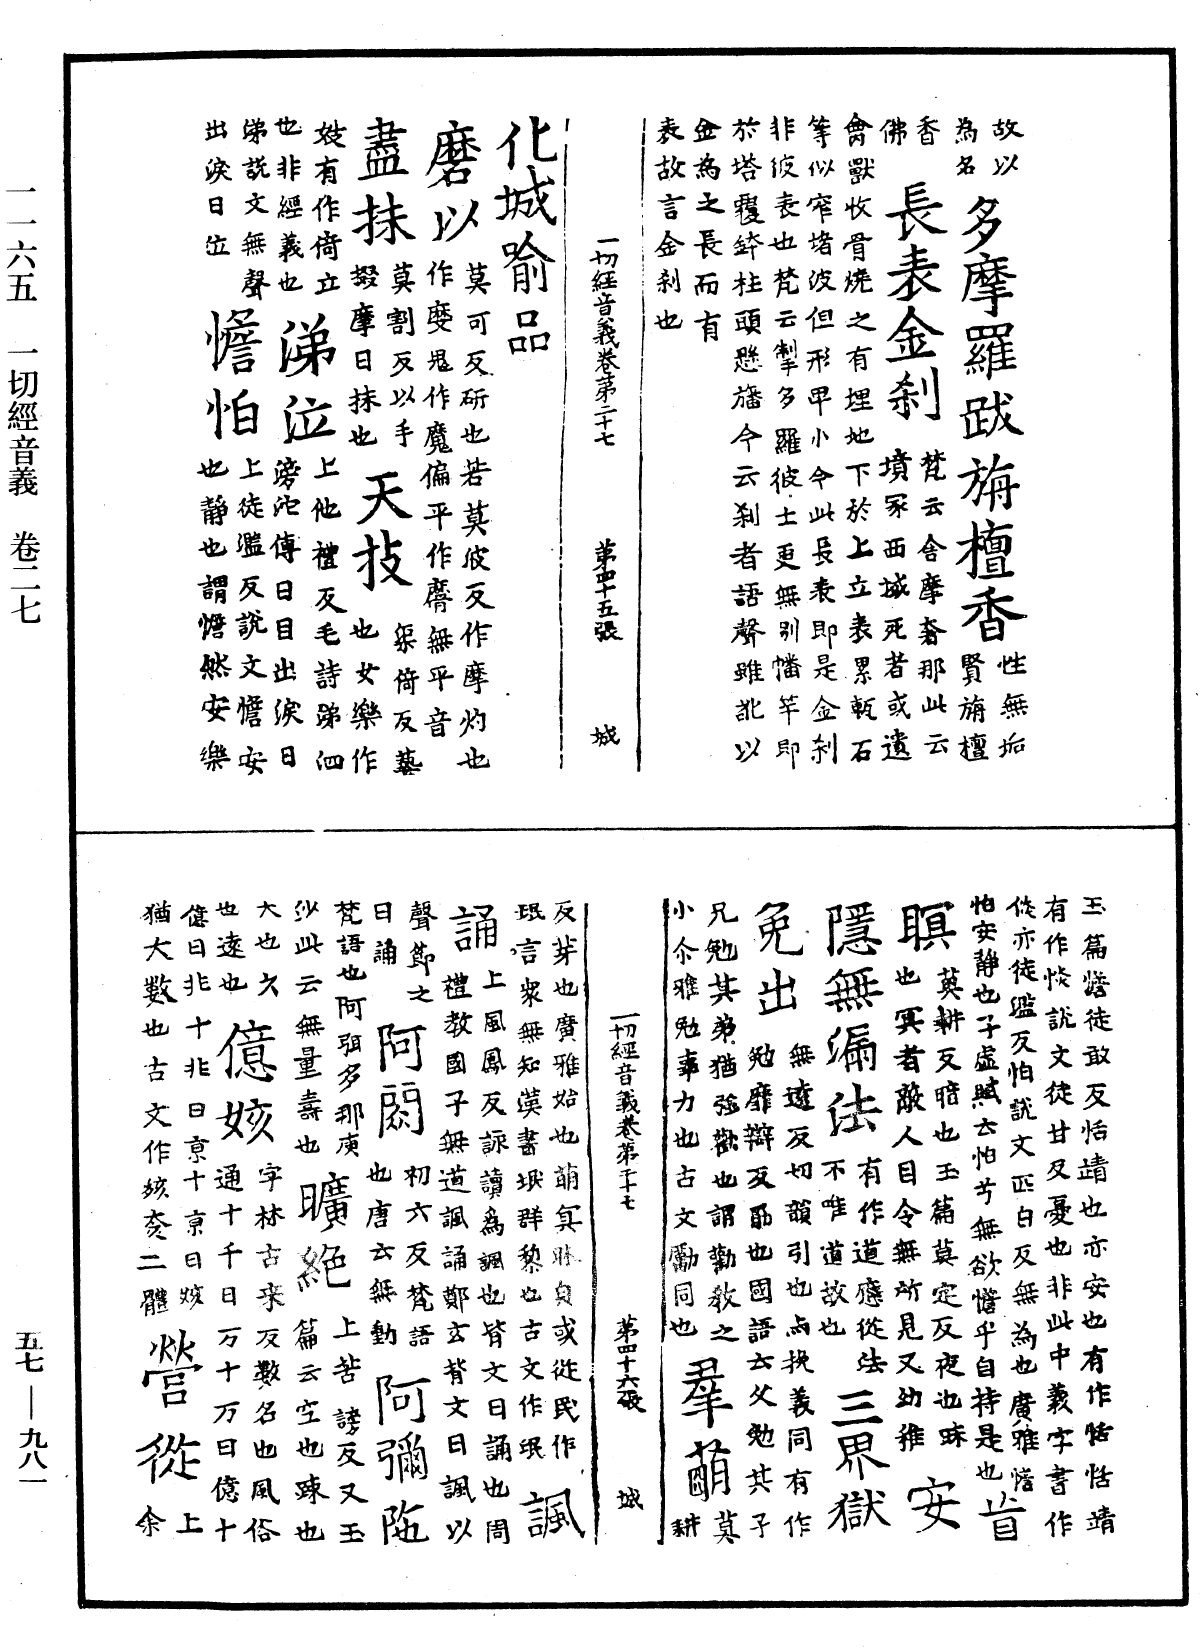 一一六五　一切經音義　卷二七
故以
為名
多摩羅跋旃檀香
性無垢
賢旃檀
香
佛
長表金刹
梵云舍摩奢那此云
墳冢西域死者或遺
禽獸收骨燒之有埋地下於上立表累甎石
等似窣堵波但形卑小今此長表即是金刹
非彼表也梵云掣多羅彼土更無別幡竿即
於塔覆鉢柱頭懸旛今云刹者語聲雖訛以
金為之長而有
表故言金刹也
一切經音義卷第二十七　第四十五張　城
化城喻品
磨以
莫可反研也若莫彼反作摩灼也
作麼鬼作魔偏平作麿無平音
盡抹
莫割反以手
掇摩曰抹也
天技
渠倚反藝
也女樂作
妓有作倚立
也非經義也
涕泣
上他禮反毛詩涕泗
滂沱傳曰目出淚曰
涕說文無聲
出淚曰泣
憺怕
上徒濫反說文憺安
也靜也謂憺然安樂
玉篇憺徒敢反恬靖也亦安也有作惔恬靖
有作惔說文徒甘反憂也非此中義字書作
倓亦徒濫反怕說文匹白反無為也廣雅憺
怕安靜也子虛賦云怕兮無欲憺乎自持是也
盲
瞑
莫耕反暗也玉篇莫定反夜也眛
也冥者敵人目令無所見又幼稚
安
隱無漏法
有作道應從法
不唯道故也
三界獄
免出
無遠反切韻引也与挽義同有作
勉靡辯反勖也國語云父勉其子
兄勉其弟猶強歡也謂勸教之
小尒雅勉事力也古文勵同也
羣萠
莫
耕
一切經音義卷第二十七　第四十六張　城
反芽也廣雅始也萠冥昧皃或從民作
珉言衆無知漢書珉群黎也古文作珉
諷
誦
上風鳳反詠讀為諷也背文曰誦也周
禮教國子無道諷誦鄭玄背文曰諷以
聲節之
曰誦
阿閦
初六反梵語
也唐云無動
阿彌陁
梵語也阿弭多那庾
沙此云無量壽也
曠絶
上苦謗反又玉
篇云空也踈也
大也久
也遠也
億姟
字林古來反數名也風俗
通十千曰万十万曰億十
億曰兆十兆曰京十京曰姟
猶大數也古文作姟奒二體
營從
上
余
五七—九八一